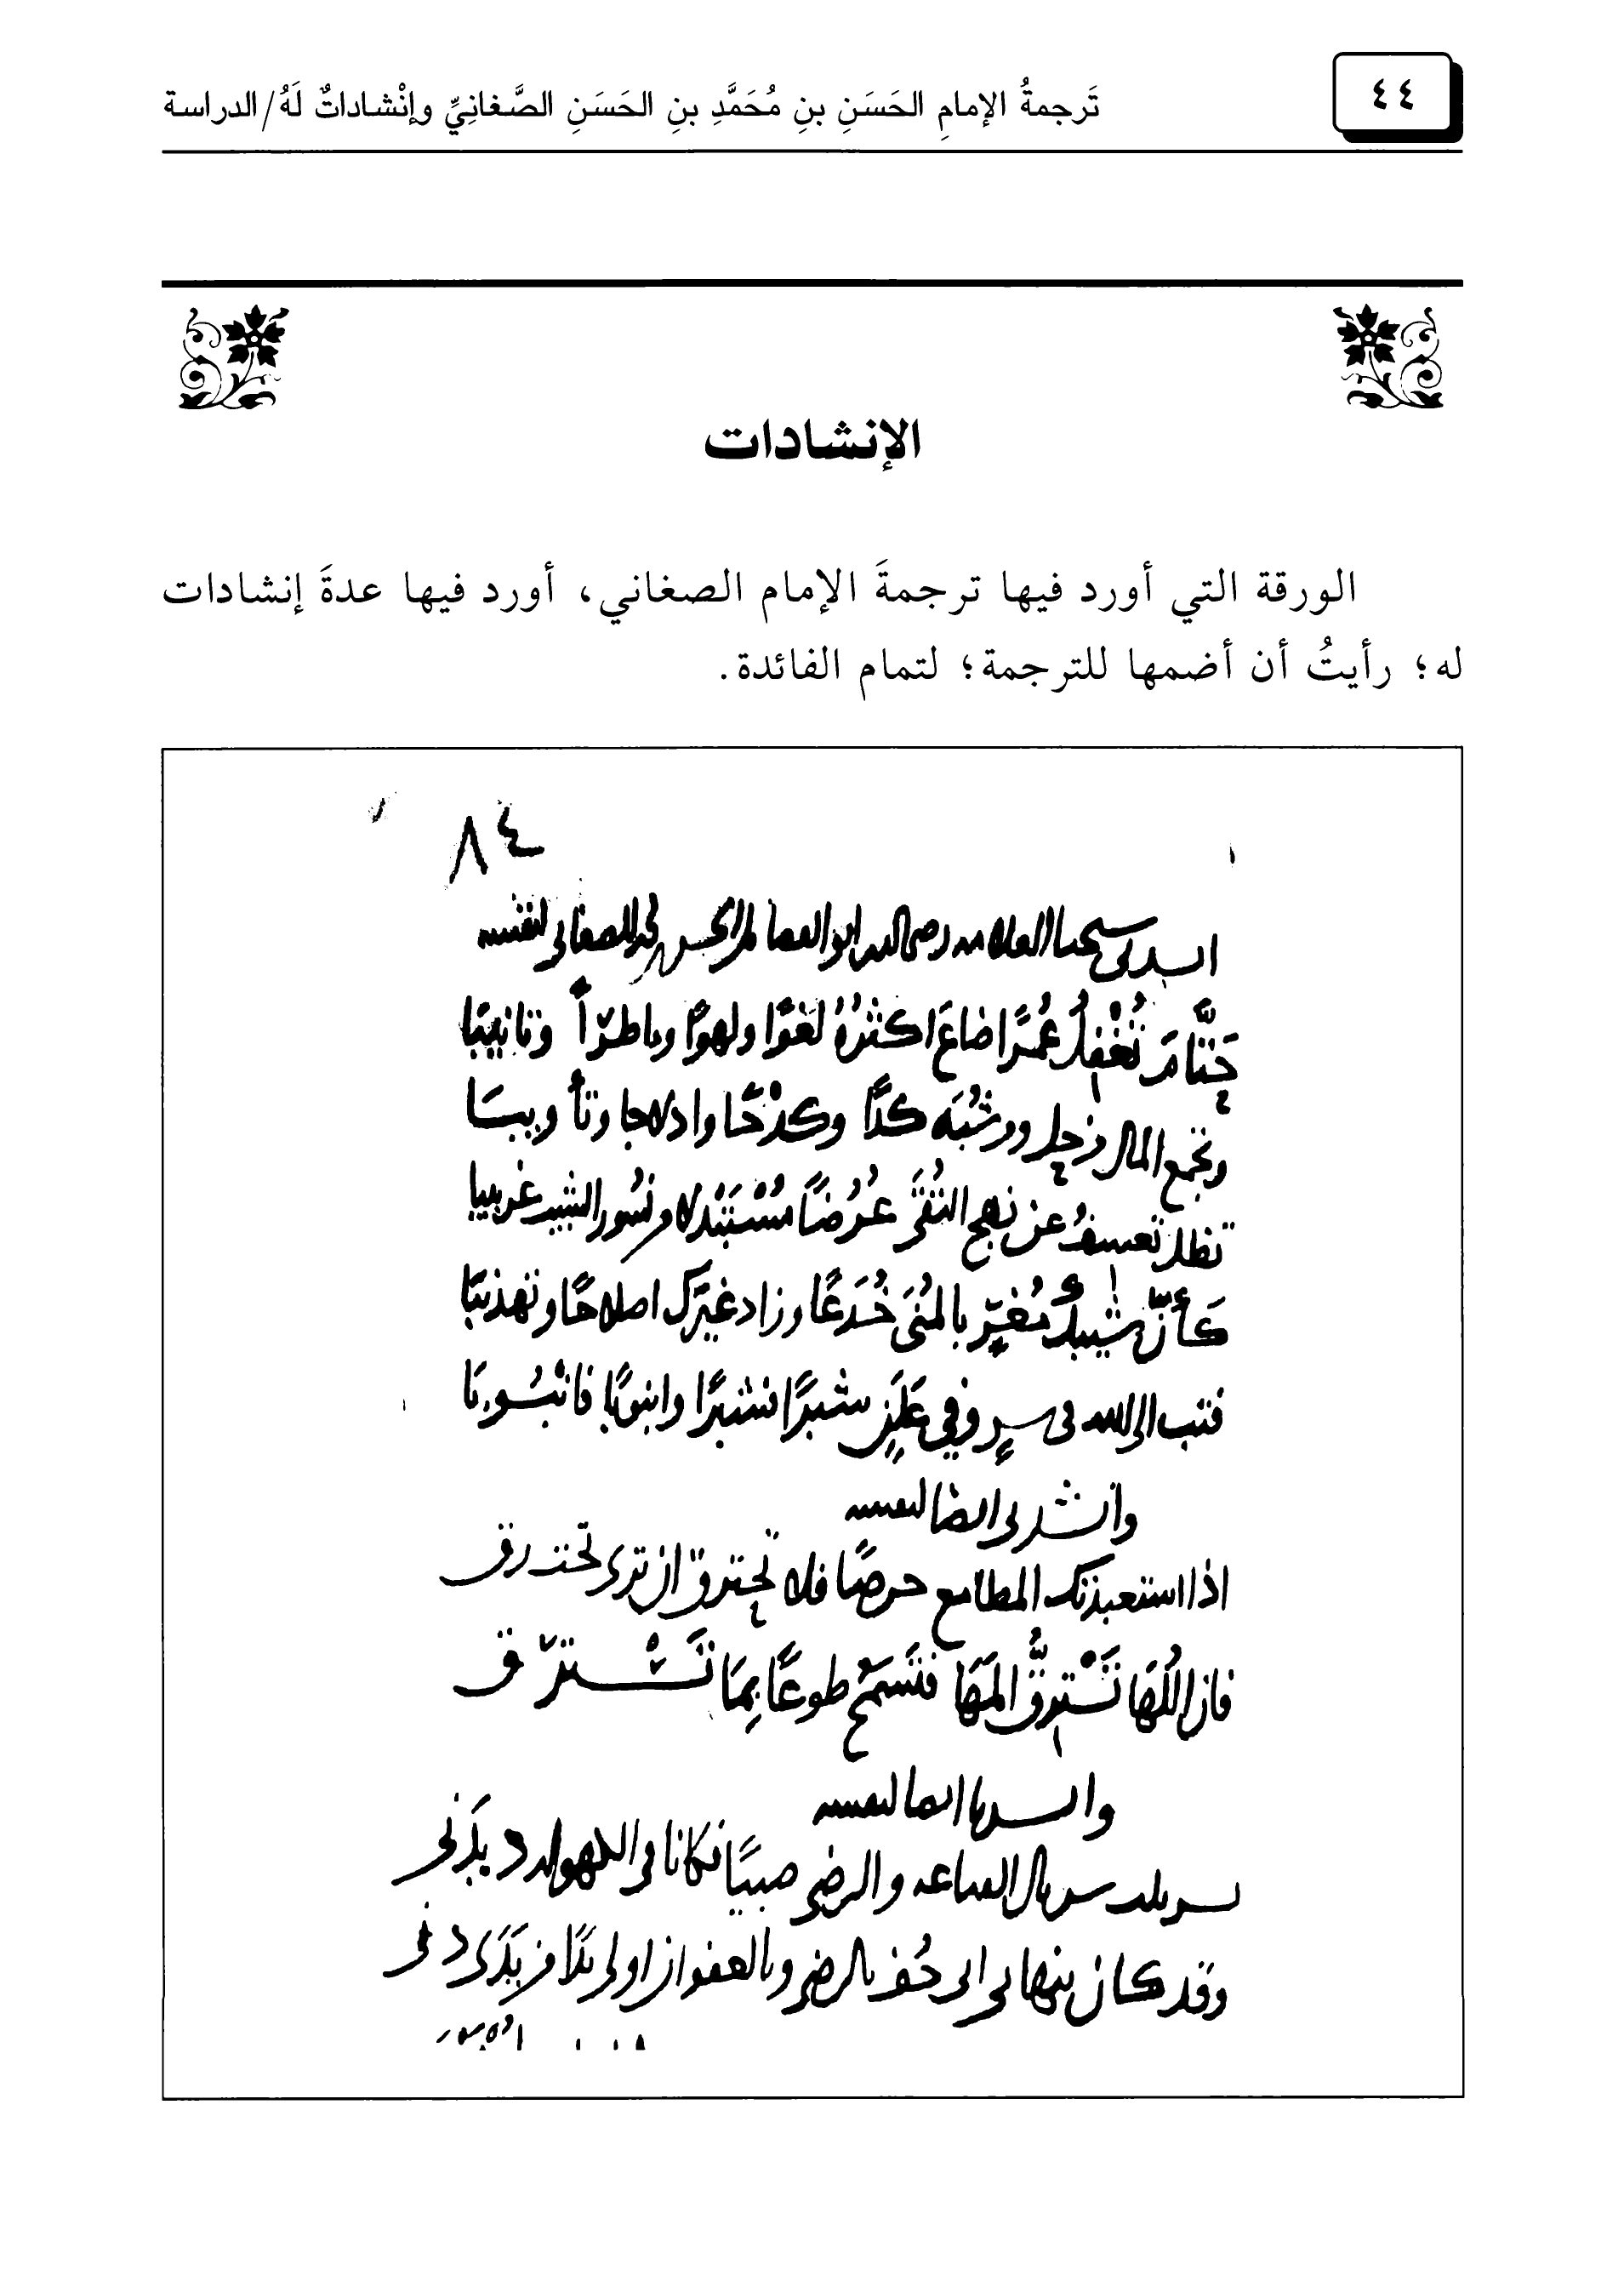 ٤٤
تَرجمةُ الإمامِ الحَسَنِ بنِ مُحَمَّدِ بنِ الحَسَنِ الصَّغانِيِّ وإنْشاداتٌ لَهُ/الدراسة
الإنشادات
الورقة التي أورد فيها ترجمةَ الإمام الصغاني، أورد فيها عدةَ إنشادات
له؛ رأيتُ أن أضمها للترجمة؛ لتمام الفائدة.
٨٤
انشدني شيخنا العلامه رضي الدين ابو الفضائل الحسن بن محمد الصغاني لنفسه
حَتَّامَ تُغْفِلُ عُمْرًا ضاعَ اكثَرُهُ لَغوًا ولهوًا وتانيبًا
وتجمع المال من حِلٍّ ومن شُبَهٍ كدًّا وكدْحًا وادلاجا وتأويبَا
تظل تعسف عن نهج التُقَى عُرُضًا مُسْتَبْدلا من سُور الشيب غربيبا
كأنّ شيبك مُغْرٍ بالمُنَى خُدَعًا وزاد غيرَك اصلاحًا وتهذيبًا
فتب الى الله في سرٍ وفي عَلَنٍ شبرًا فشبرًا وانبوبًا فانْبُوبَا
وانشدني ايضا لنفسه
اذا استعبدتك المطامع حرصًا فلا تحترق ان ترى تحت رق
فان اللُهَا تَسْتَرِقُّ المَهَا فتَسمَحُ طوعًا بِمَا تَسْترق
وانشدنا ايضا لنفسه
تسربلت سربال القناعه والرضى صبيًا وكانا في الكهولة ديدَنى
وقد كان ينهاني ابي حُفَّ بالرضى وبالعفو ان اولي يَدًا من يَدَى دنى